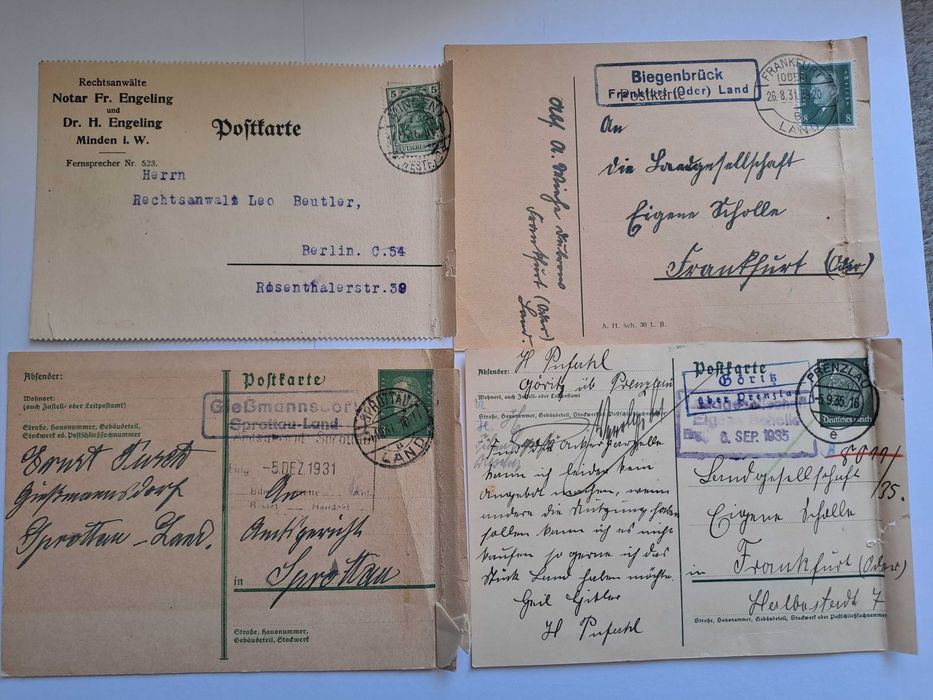 Rechtsanwälte
Notar Fr. Engeling
und
Dr. H. Engeling
Minden i. W.
Fernsprecher Nr. 523.
Postkarte
5 5
MINDEN
Herrn
Rechtsanwalt Leo Beutler,
Berlin. C.54
Rosenthalerstr.39
Biegenbrück
Frankfurt (Oder) Land
Postkarte
FRANKFURT
(ODER)
26.8.31.19-20
e
LAND
8 8
An
die Landgesellschaft
Eigene Scholle
Frankfurt (Oder)
Abs. A.
Frankfurt (Oder)
Land.
A. H. Sch. 30 L. B.
Absender:
Wohnort:
(auch Zustell- oder Leitpostamt)
Straße, Hausnummer,
Gebäudeteil, Stockwerk
od. Postschließfachnummer
Postkarte
Gießmannsdorf
Sprottau-Land
SPROTTAU
a
LAND
Eing.
-5.DEZ.1931
Ernst
Gießmannsdorf
Sprottau-Land.
An
Amtsgericht
in
Sprottau
Straße, Hausnummer,
Gebäudeteil, Stockwerk
H Pufahl
Absender:
Göritz üb Prenzlau
Wohnort, auch Zustell- oder Leitpostamt
Straße, Hausnummer, Gebäudeteil, Stockwerk oder Postschließfachnummer
Postkarte
Göritz
über Prenzlau
Eigene Scholle
6. SEP. 1935
PRENZLAU
-5.9.35.16
e
Deutsches Reich
/35.
Ackerparzelle
kann ich leider kein
Angebot machen, wenn
andere die Nutzung haben
sollen kann ich es nicht
kaufen so gerne ich das
Stück Land haben möchte.
Heil Hitler
H Pufahl
Landgesellschaft
Eigene Scholle
in
Frankfurt (Oder)
Halbestadt 7
Straße, Hausnummer, Gebäudeteil, Stockwerk oder Postschließfachnummer